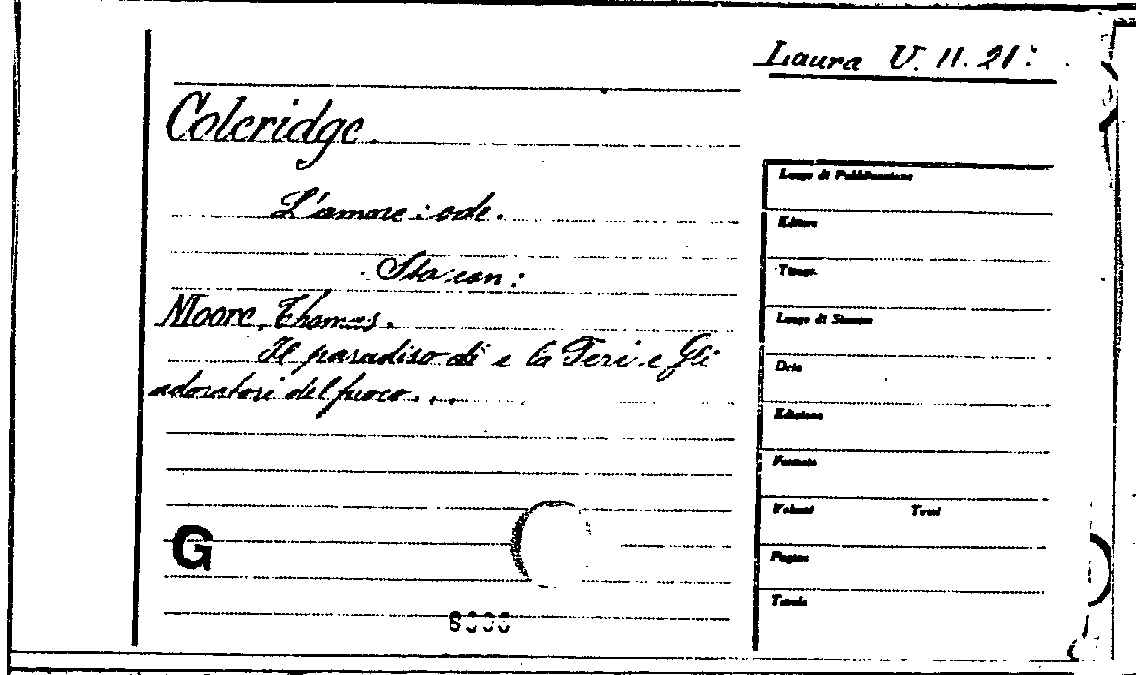 Laura V. 11. 21:
Coleridge.
L'amore: ode.
Sta con:
Moore, Thomas.
Il paradiso di e la Peri e Gli
adoratori del fuoco...
Luogo di Pubblicazione
Editore
Tipogr.
Luogo di Stampa
Data
Edizione
Formato
Volumi Tomi
Pagine
Tavole
G